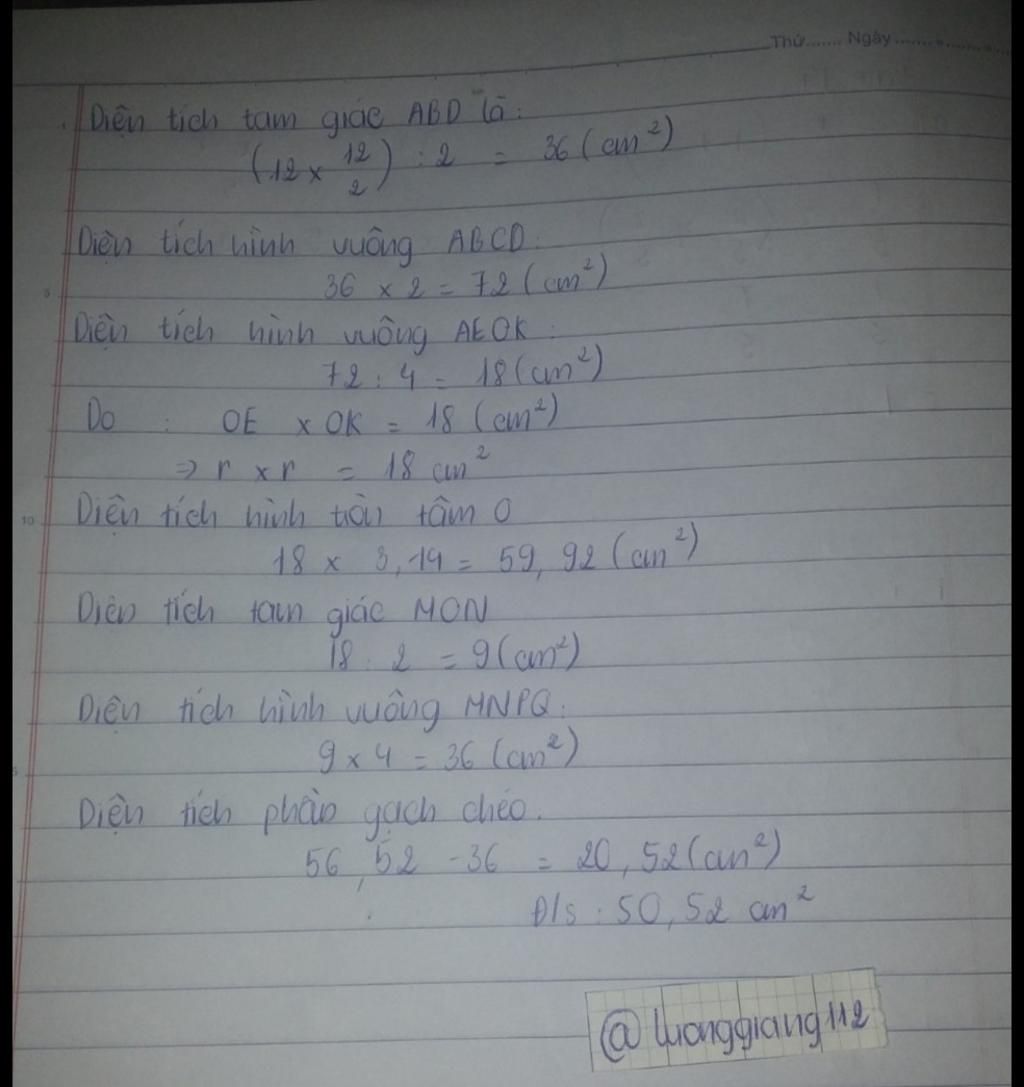 Thứ....... Ngày.....................
Diện tích tam giác ABD là:
(12 x 12/2) : 2 = 36 (cm²)
Diện tích hình vuông ABCD:
5
36 x 2 = 72 (cm²)
Diện tích hình vuông AEOK:
72 : 4 = 18 (cm²)
Do : OE x OK = 18 (cm²)
=> r x r = 18 cm²
10
Diện tích hình tròn tâm O
18 x 3,14 = 59,92 (cm²)
Diện tích tam giác MON
18 : 2 = 9 (cm²)
Diện tích hình vuông MNPQ:
9 x 4 = 36 (cm²)
Diện tích phần gạch chéo.
56,52 - 36 = 20,52 (cm²)
Đ/s : 50,52 cm²
@ luonggiang112